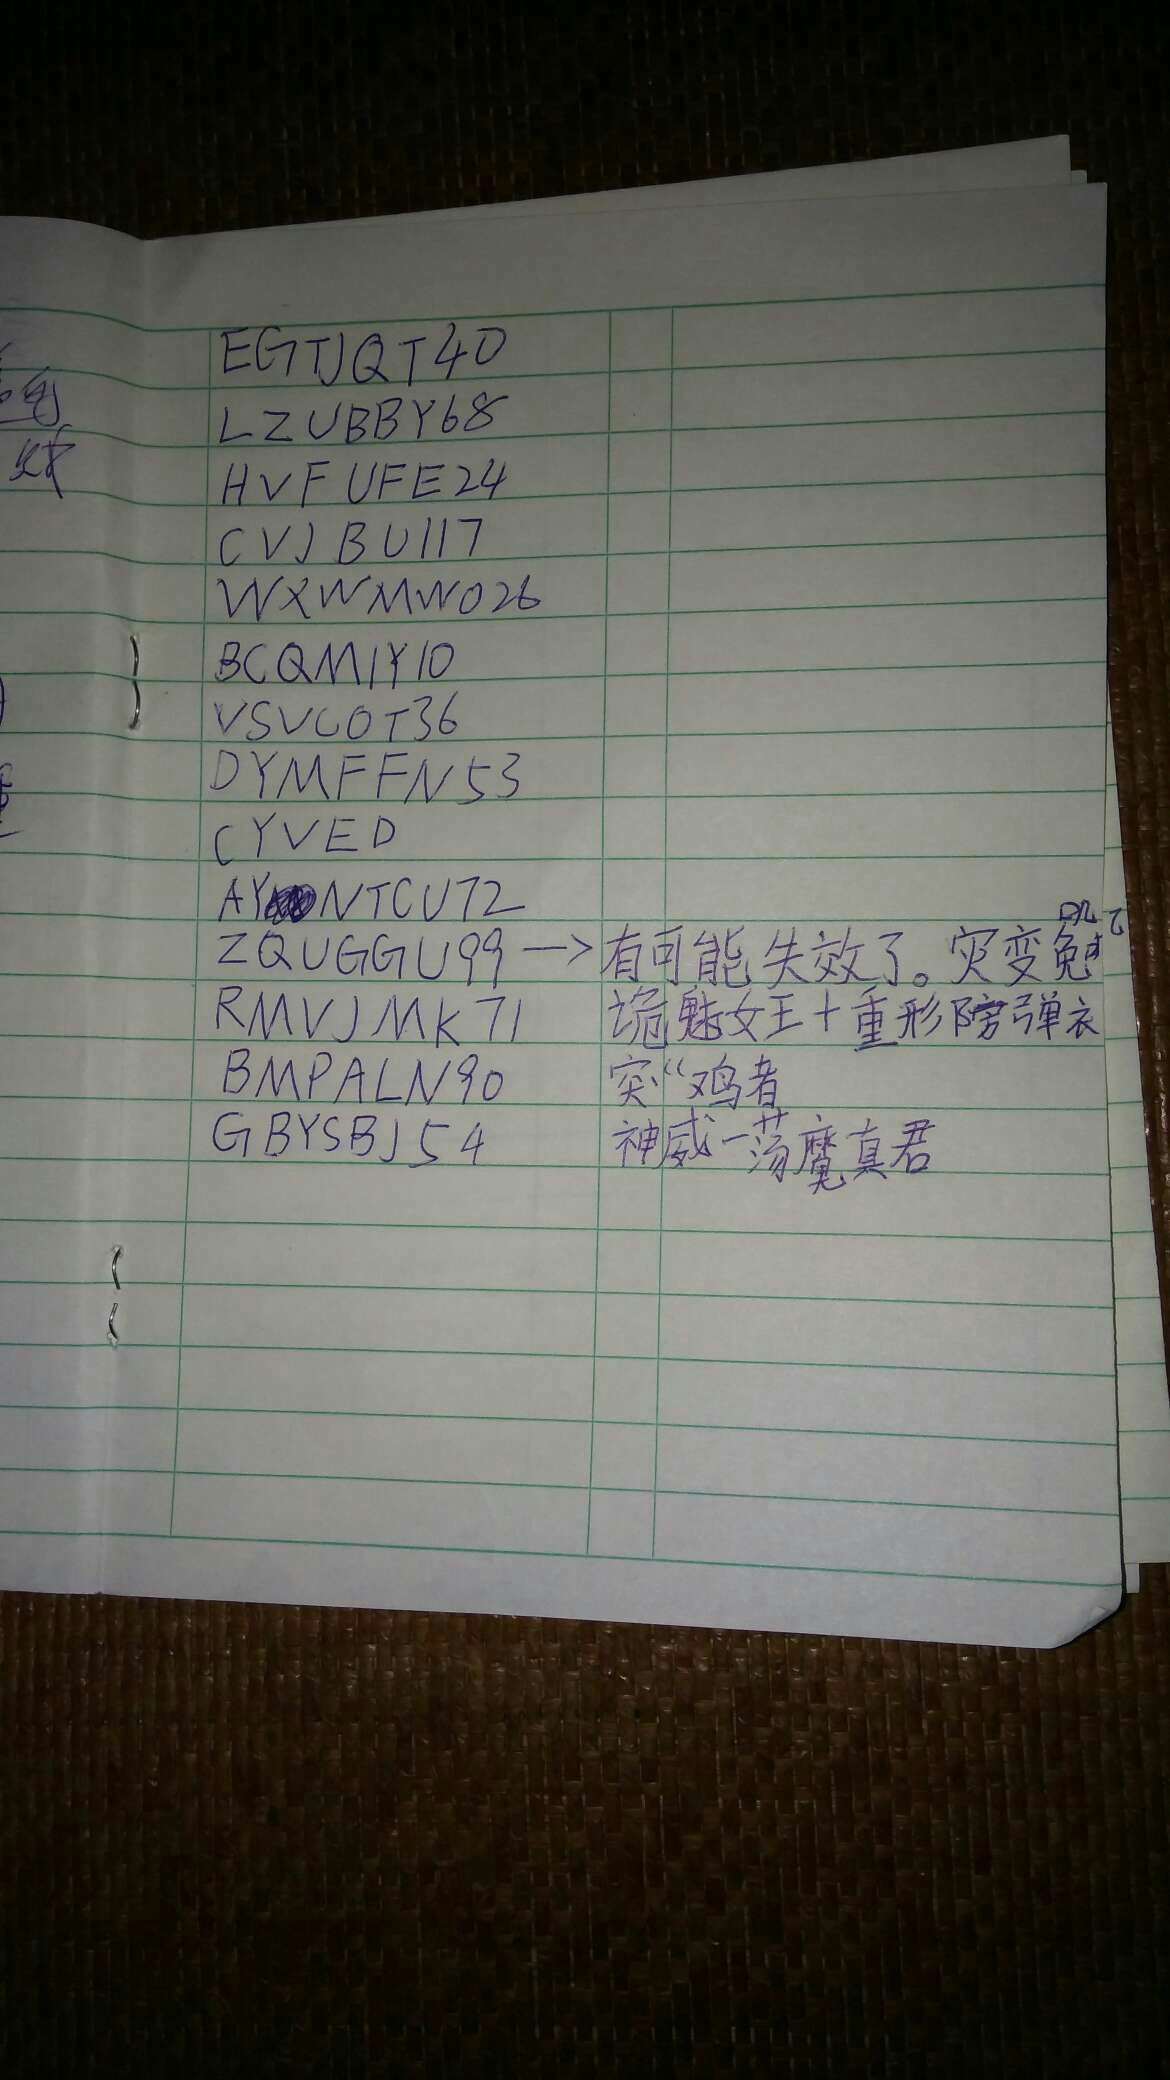 EGTJQT40
LZUBBY68
HVFUFE24
CVJBU117
WXWMWO26
BCQMIY10
VSVCOT36
DYMFFN53
CYVED
AYNTCU72
ZQUGGU99 → 有可能失效了。灾变兔
RMVJMK71 诡魅女王+重形防弹衣
BMPALN90 突“鸡者
GBYSBJ54 神威一荡魔真君